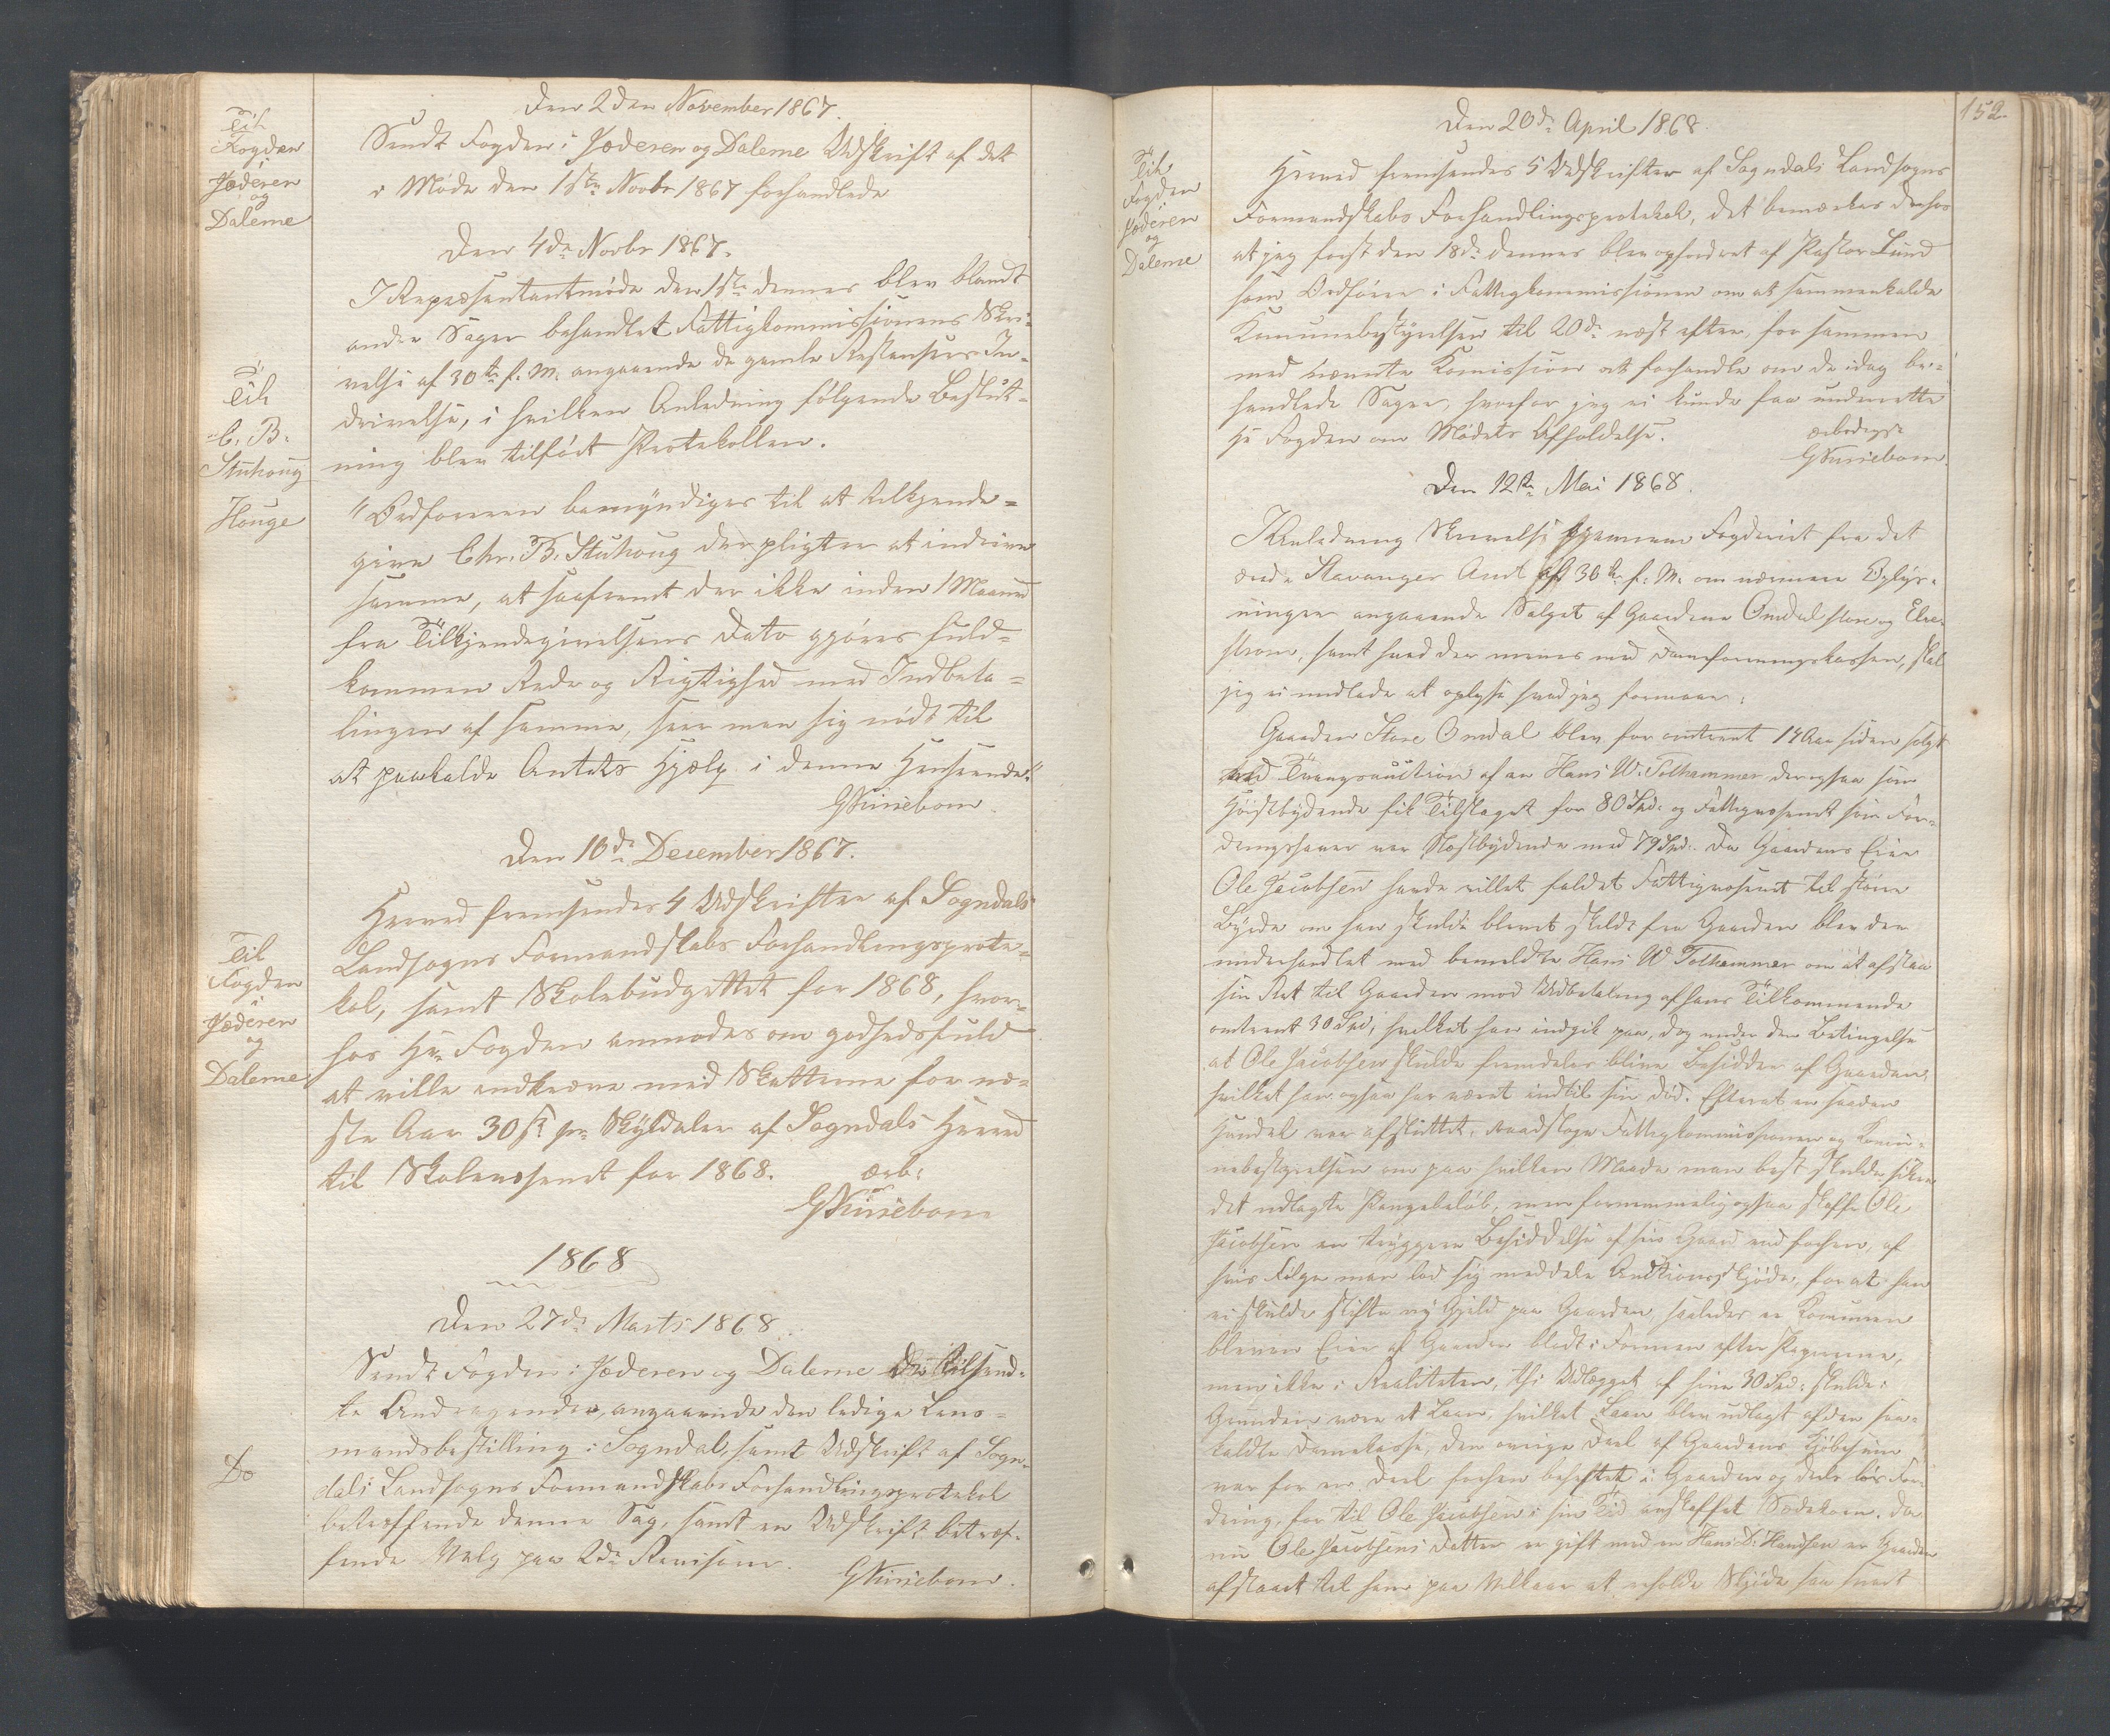 Til
Fogden
i
Jæderen
og
Dalerne
Den 2den November 1867.
Sendt Fogden i Jæderen og Dalerne Udskrift af det
i Møde den 1ste Novbr 1867 forhandlede
Den 4de Novbr 1867.
Til
C. B.
Stuhoug
Houge
I Repræsentantmøde den 1ste dennes blev blandt
andre Sager behandlet Fattigkommissionens Skri-
velse af 30te f. M. angaaende de gamle Restansers In-
drivelse, i hvilken Anledning følgende Beslut-
ning blev tilført Protokollen.
"Ordføreren bemyndiges til at tilkjende-
give Chr. B. Stuhoug der pligter at indrive
samme, at saafremt der ikke inden 1 Maaned
fra Tilkjendegivelsens Dato gjøres fuld-
kommen Rede og Rigtighed med Indbeta-
lingen af samme, seer man sig nødt til
at paakalde Amtets Hjælp i denne Henseende."
Den 10de December 1867.
Til
Fogden
i
Jæderen
og
Dalerne
Herved fremsendes 4 Udskrifter af Sogndals
Landsogns Formandskabs Forhandlingsproto-
kol, samt Skolebudgettet for 1868, hvor-
hos Hr Fogden anmodes om godhedsfuld
at ville indkræve med Skatterne for næ-
ste Aar 30 s pr Skyldaler af Sogndals Herred
til Skolevæsenet for 1868. ærb:
1868
Den 27de Marts 1868
Do
Sendt Fogden i Jæderen og Dalerne de tilsend-
te Andragender, angaaende den ledige Lens-
mandsbestilling i Sogndal, samt Udskrift af Sogn-
dals Landsogns Formandskabs Forhandlingsprotokol
betræffende denne Sag, samt en Udskrift betræf-
fende Valg paa 2de Revisorer.
152.
Til
Fogden
i
Jæderen
og
Dalerne
Den 20de April 1868
Herved fremsendes 5 Udskrifter af Sogndals Landsogns
Formandskabs Forhandlingsprotokol, det bemærkes derhos
at jeg først den 18de dennes blev opfordret af Pastor Lund
som Ordfører i Fattigkommissionen om at sammenkalde
Komunebestyrelsen til 20de næst efter, for sammen
med nævnte Komission at forhandle om de idag be-
handlede Sager, hvorfor jeg ei kunde faa underrette
Hr Fogden om Mødets Afholdelse. ærbødigst
Den 12te Mai 1868.
I Anledning Skrivelse gjennem Fogderiet fra det
Stavanger Amt af 30te f. M. om nærmere Oplys-
ninger angaaende Salget af Gaardene Omdal store og Elve-
strøm, samt hvad der menes med skal
jeg ei undlade at oplyse hvad jeg formaar.
Gaarden Store Omdal blev for omtrent 14 Aar siden solgt
ved Tvangsauction af en Hans W. Tothammer der ogsaa som
Høistbydende fik Tilslaget for 80 Spd: og Fattigvæsenet som For-
dringshaver var Næstbydende med 79 Spd. Da Gaardens Eier
Ole Jacobsen havde villet faldet Fattigvæsenet til større
Byrde om han skulde blevet skildt fra Gaarden blev der
underhandlet med bemeldte Hans W Tothammer om at afstaa
sin Ret til Gaarden mod Udbetaling af hans Tilkommende
omtrent 30 Spd, hvilket han indgik paa, dog under den Betingelse
at Ole Jacobsen skulde fremdeles blive Besidder af Gaarden,
hvilket han ogsaa har været indtil sin død. Efterat en saadan
Handel var afsluttet, raadslog Fattigkommissionen og Komu-
nebestyrelsen om paa hvilken Maade man bedst skulde sikre
det udlagte Pengebeløb, men fornemmelig ogsaa skaffe Ole
Jacobsen en tryggere Besiddelse af sin Gaard end forhen, af
hvis Følge man lod sig meddele Auktionsskjøde, for at han
ei skulde stifte ny Gjeld paa Gaarden, saaledes er Komunen
bleven Eier af Gaarden blot i Formen efter Papirerne,
men ikke i Realiteten, thi Udlægget af hine 30 Spd: skulde i
Grunden være et Laan, hvilket Laan blev udlagt af den saa-
kaldte den øvrige Deel af Gaardens Kjøbesum
var for en Deel forhen beheftet i Gaarden og deels løs For-
dring, for til Ole Jacobsen i sin Tid anskaffet Sædekorn. Da
nu Ole Jacobsens Datter er gift med en Hans D. Handsen er Gaarden
afstaaet til ham paa Vilkaar at erholde Skjøde saa snart